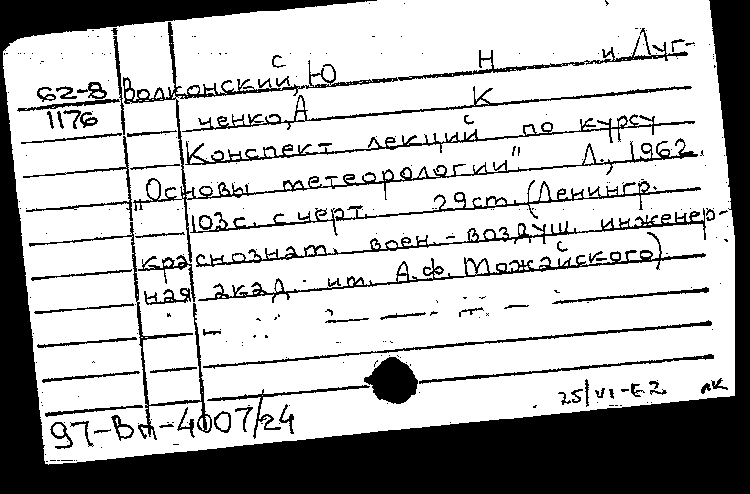 62-8 Волконский, Ю Н и Луг-
1176 ченко, А К
Конспект лекций по курсу
„Основы метеорологии" Л., 1962.
103с. с черт. 29см. (Ленингр.
краснознам. воен.-воздуш. инженер-
ная акад. им. А.Ф. Можайского).
97-Вп-4007/24
25/VI-62 лк